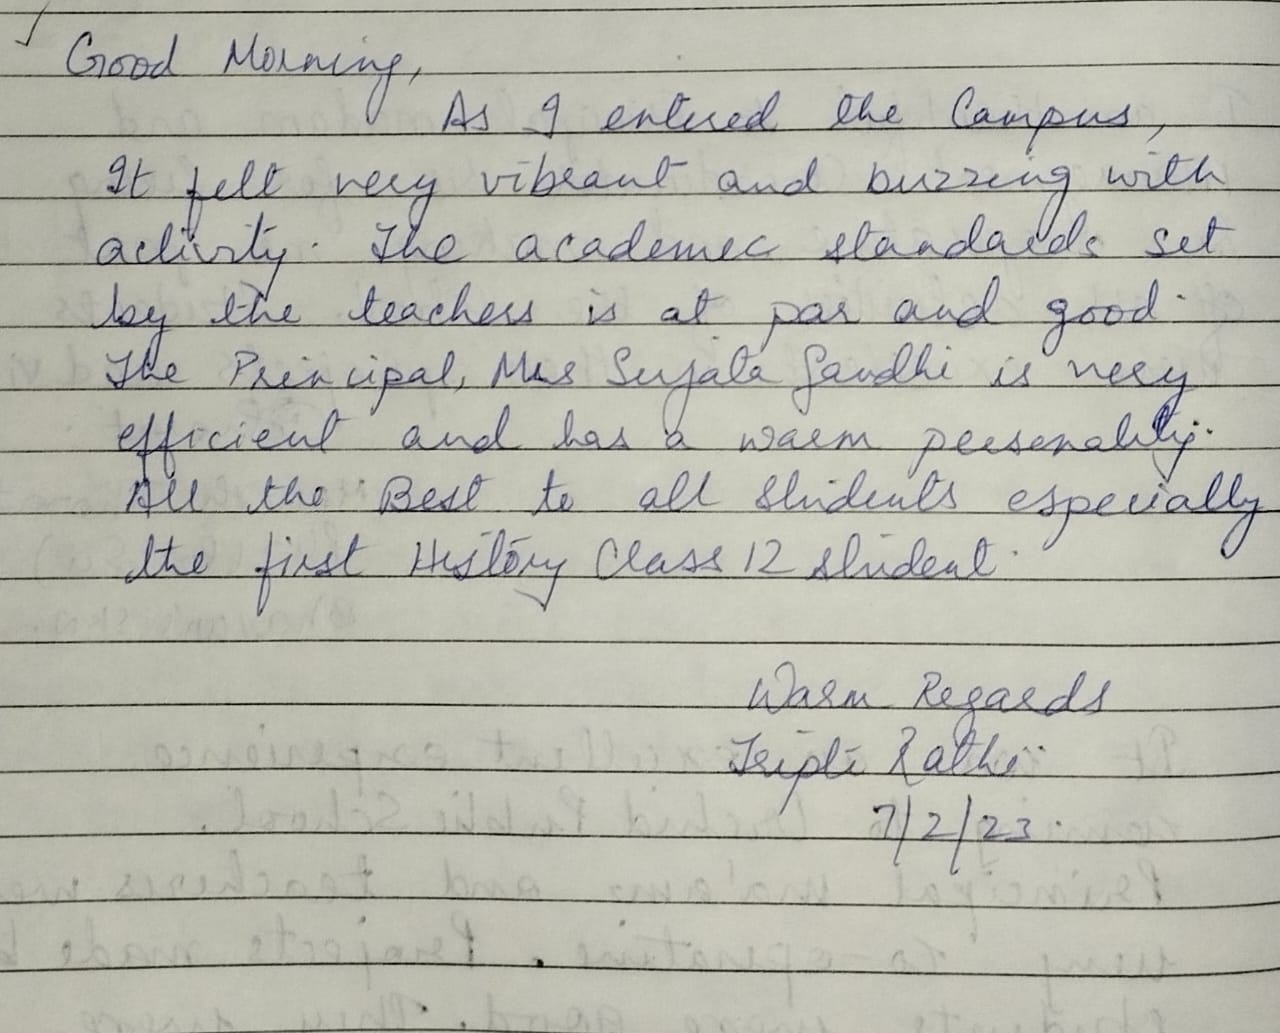 Good Morning,
As I entered the Campus,
It felt very vibrant and buzzing with
activity. The academic standards set
by the teachers is at par and good.
The Principal, Mrs Sujata Gandhi is very
efficient and has a warm personality.
All the Best to all students especially
the first History Class 12 student.
Warm Regards
Tripti Rathi
7/2/23